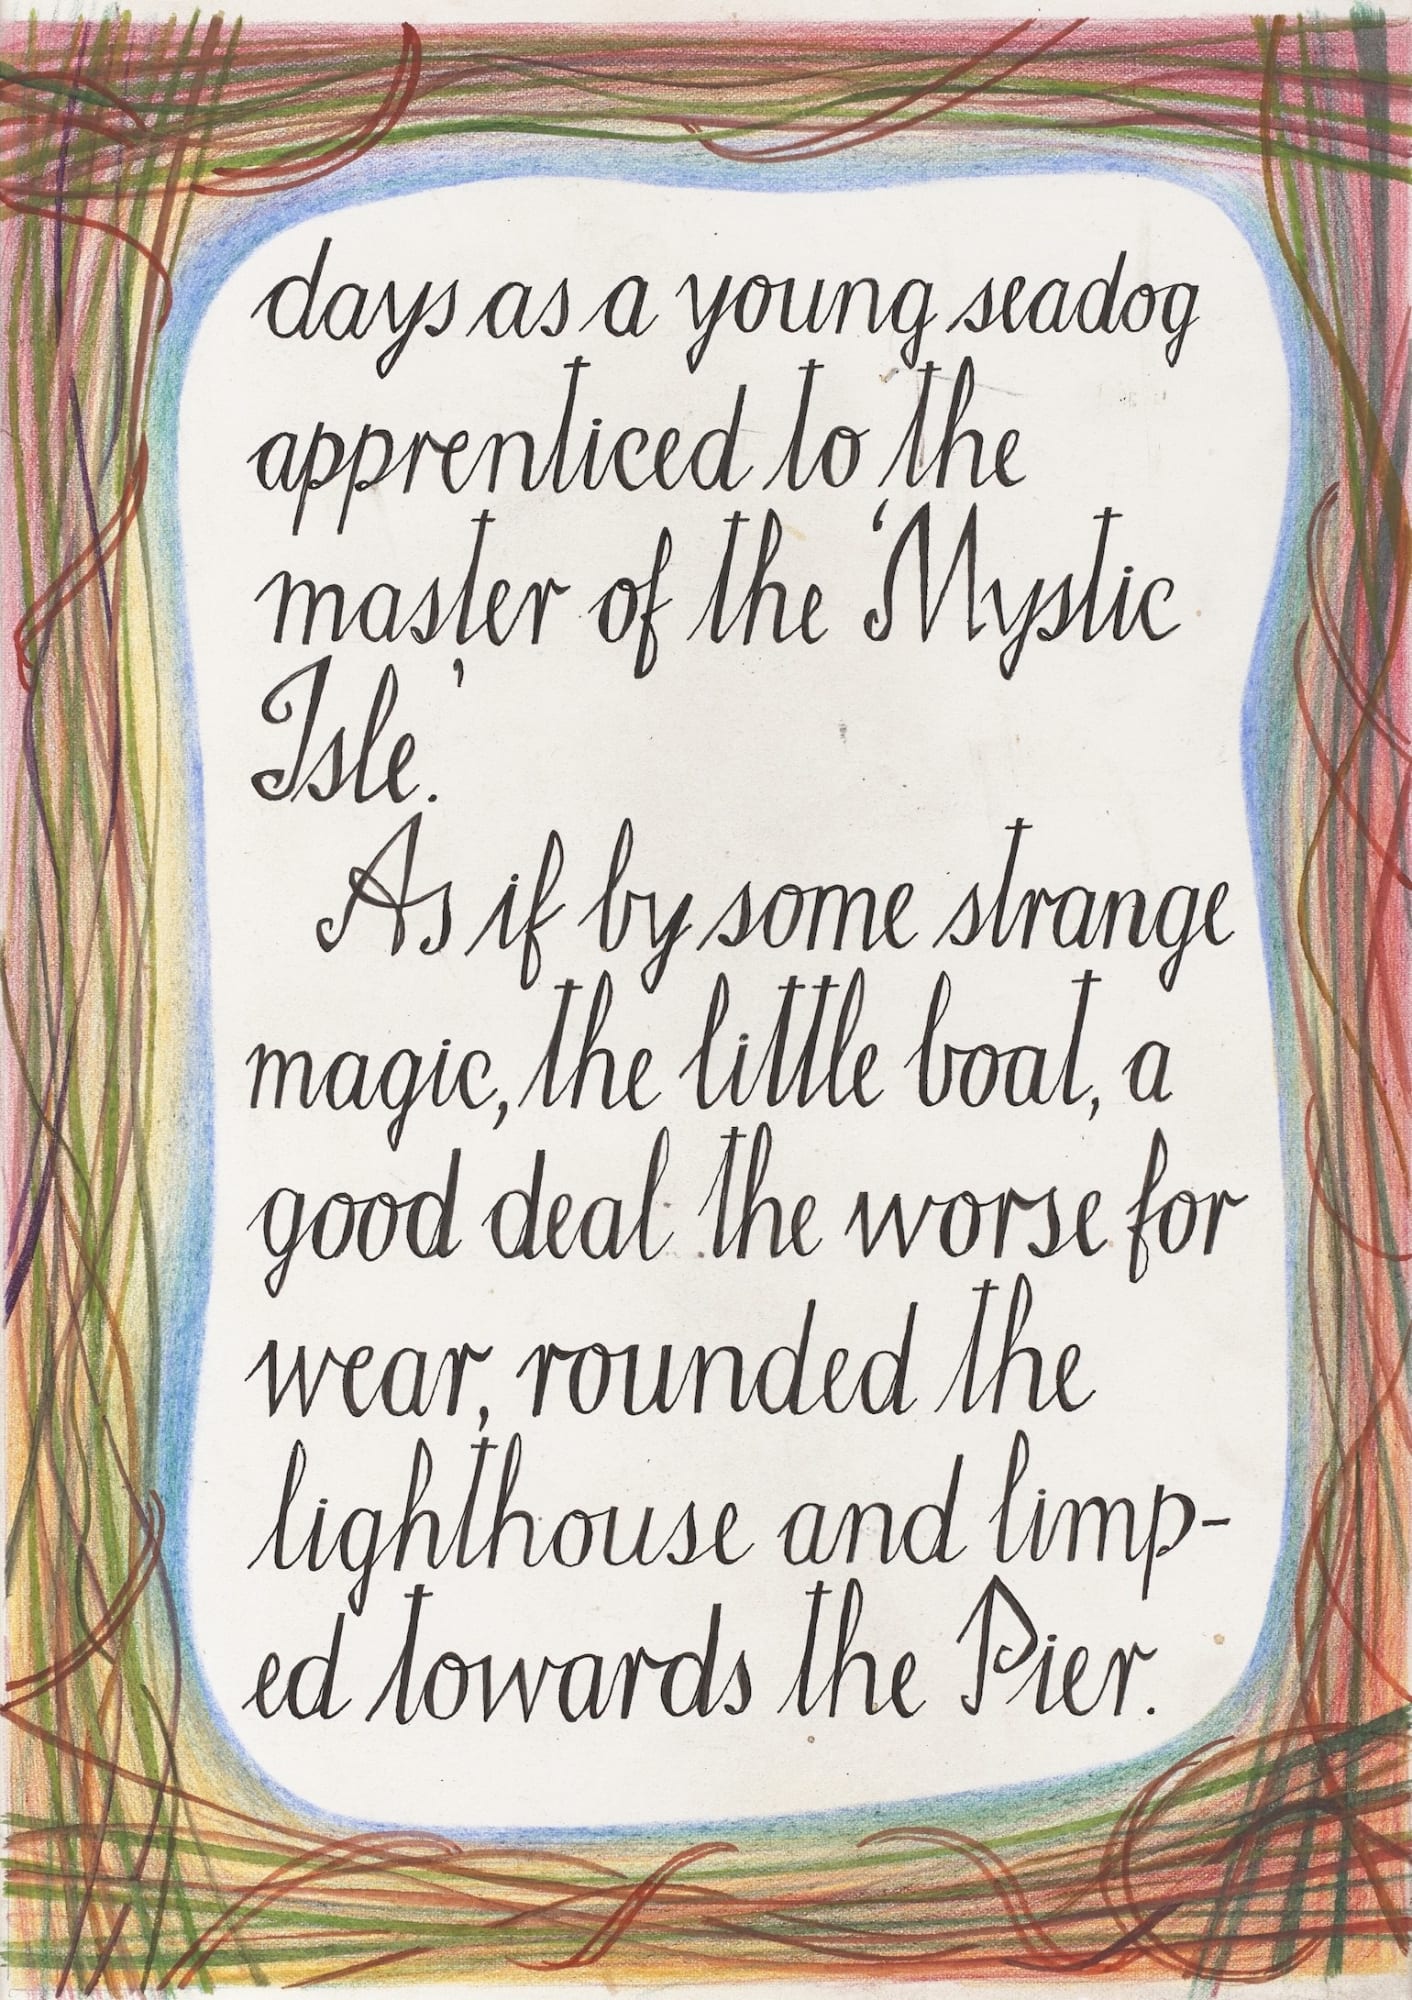 days as a young seadog
apprenticed to the
master of the ‘Mystic
Isle.’
As if by some strange
magic, the little boat, a
good deal the worse for
wear, rounded the
lighthouse and limp-
ed towards the Pier.